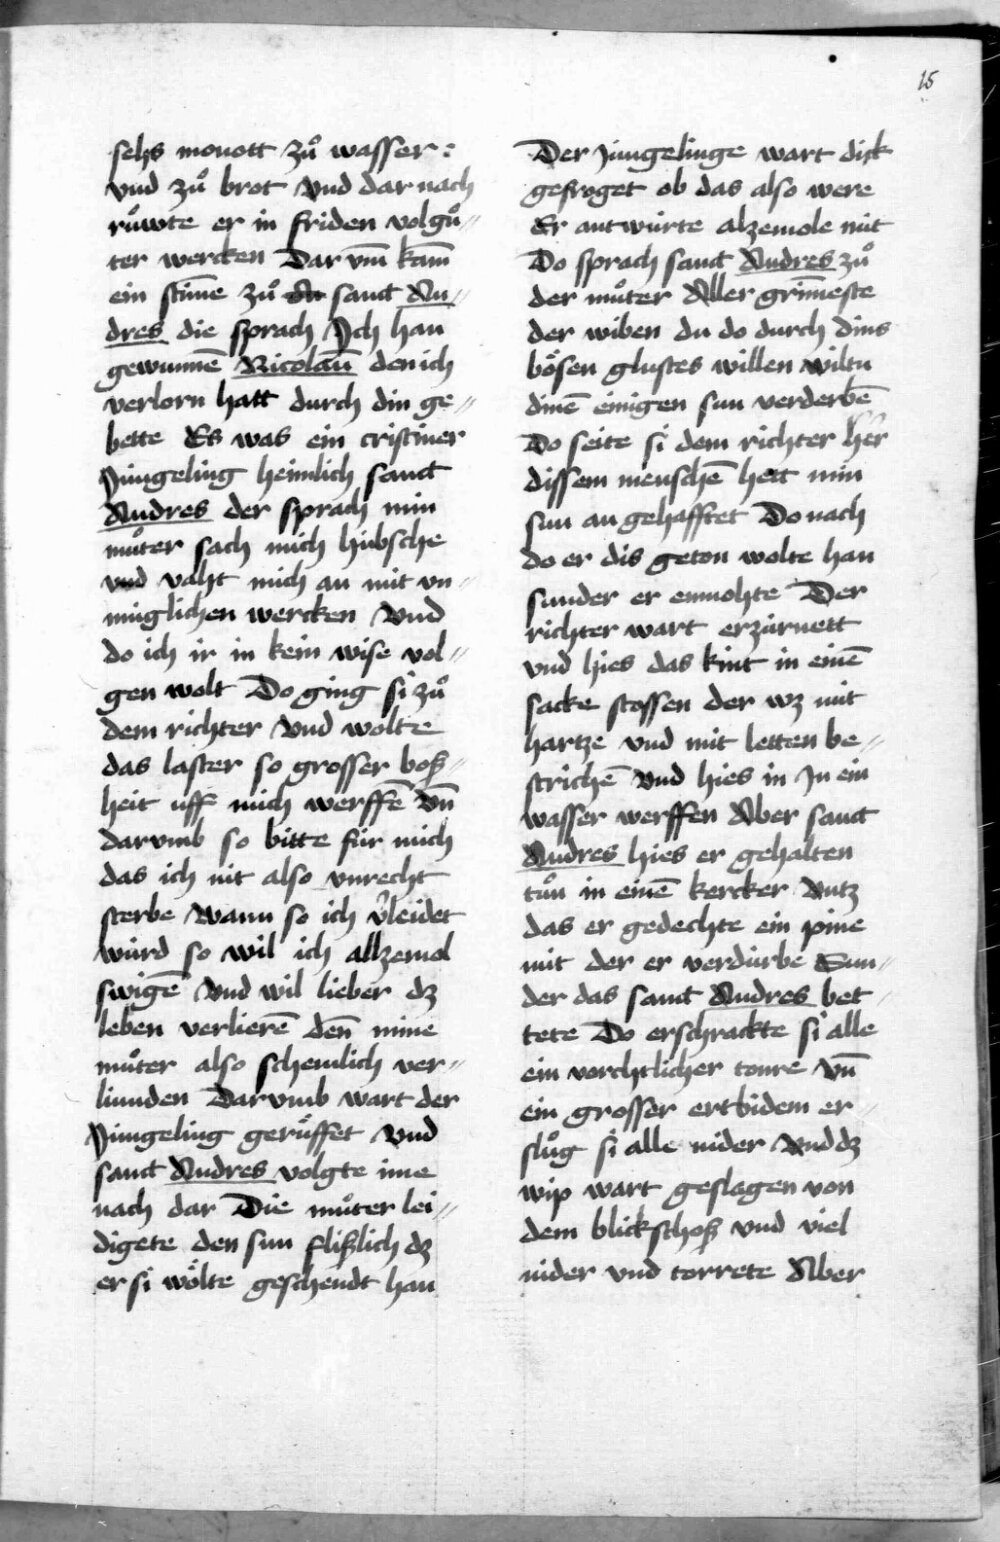 15
sehs monott zuͦ wasser :
vnd zuͦ brot Vnd dar nach
ruͦwte er in friden vol guͦ⸗
ter wercken Dar vm̄ kam̄
ein stim̄e zuͦ sanct An⸗
dres die sprach Ich han
gewunnē Nicolaū den ich
verlorn hatt durch din ge⸗
bette Es was ein cristiner
Jungeling heimlich sanct
Andres der sprach min
muͦter sach mich hübsche
vnd vaht mich an mit vn⸗
müglichen wercken Vnd
do ich ir in kein wise vol⸗
gen wolt Do ging si zuͦ
dem richter Vnd wolte
das laster so grosser boß⸗
heit uff mich werffē Vn̄
dar vmb so bitte für mich
das ich nit also vnrecht
sterbe Wann so ich v̾leidet
würd so wil ich allzemol
swigē Vnd wil lieber dz
leben verlierē den̄ mine
muͦter also schemlich ver⸗
liimden Dar vmb wart der
Jungeling gerüffet Vnd
sanct Andres volgte ime
nach dar Die muͦter lei⸗
digete den sun flißlich dz
er si wölte geschendt han
Der Jungelinge wart dick
gefroget ob das also were
Er antwürte alzemole nüt
Do sprach sanct Andres zuͦ
der muͦter Aller grim̄este
der wiben du do durch dins
bösen glustes willen wiltu
dinē einigen sun verderbē
Do seite si dem richter her̾
dissem menschē hett min
sun an gehafftet Do nach
do er dis geton wolte han
sunder er enmohte Der
richter wart erzürnett
vnd hies das kint in einē
sacke stossen der wz mit
hartze vnd mit letten be⸗
strichē Vnd hies in In ein
wasser werffen Aber sanct
Andres hies er gehalten
tuͦn in einē kercker Vntz
das er gedechte ein pine
mit der er verdürbe Sun⸗
der das sanct Andres bet⸗
tete Do erschrackte si alle
ein vorchtlicher tonre Vn̄
ein grosser ertbidem er⸗
sluͦg si alle nider Vnd dz
wip wart geslagen von
dem blickschoß vnd viel
nider vnd torrete Aber